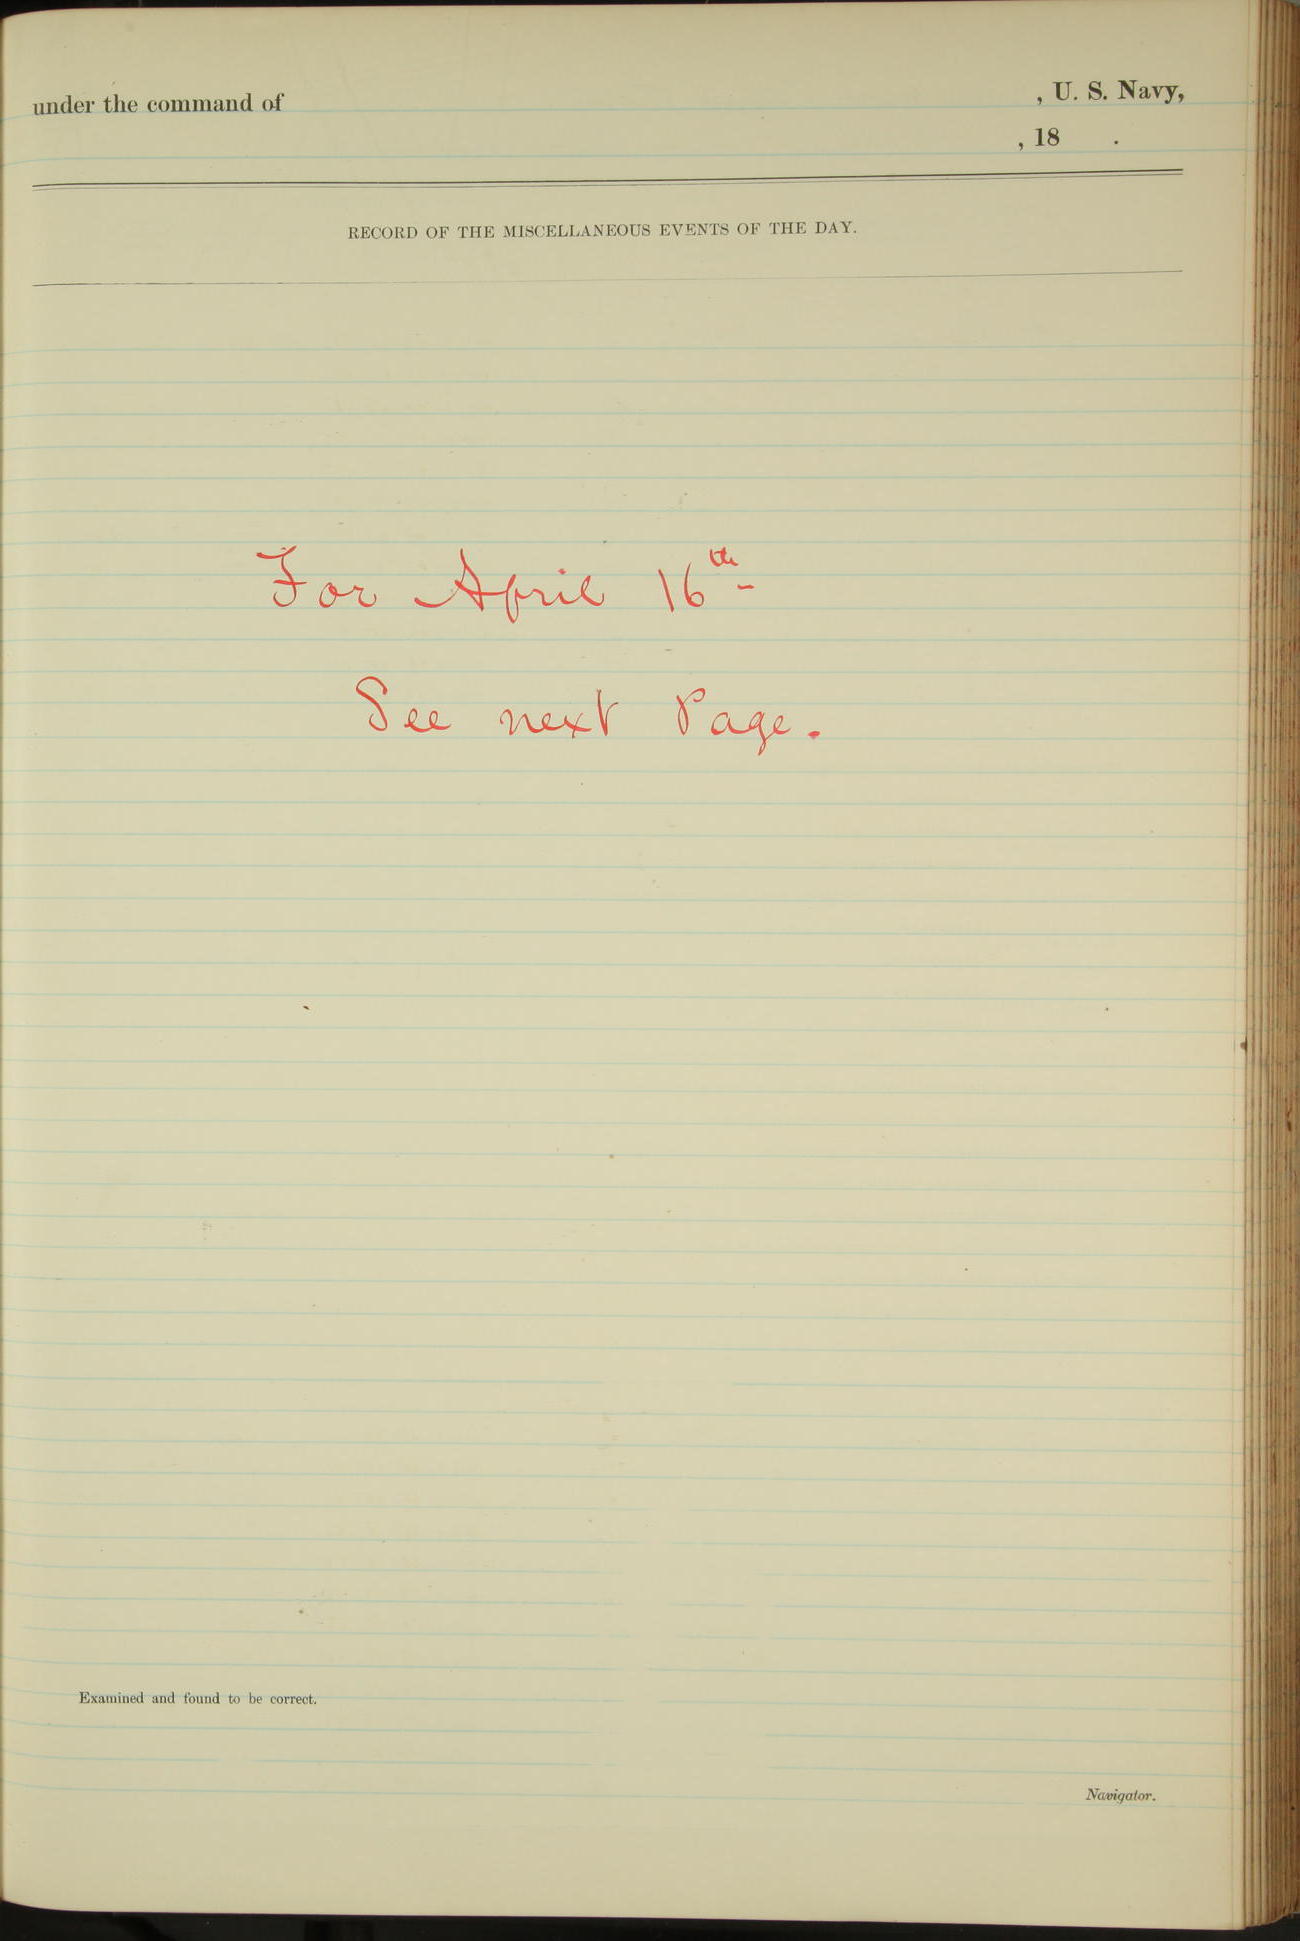 under the command of , U. S. Navy,
, 18 .
RECORD OF THE MISCELLANEOUS EVENTS OF THE DAY.
For April 16th
See next Page.
Examined and found to be correct.
Navigator.